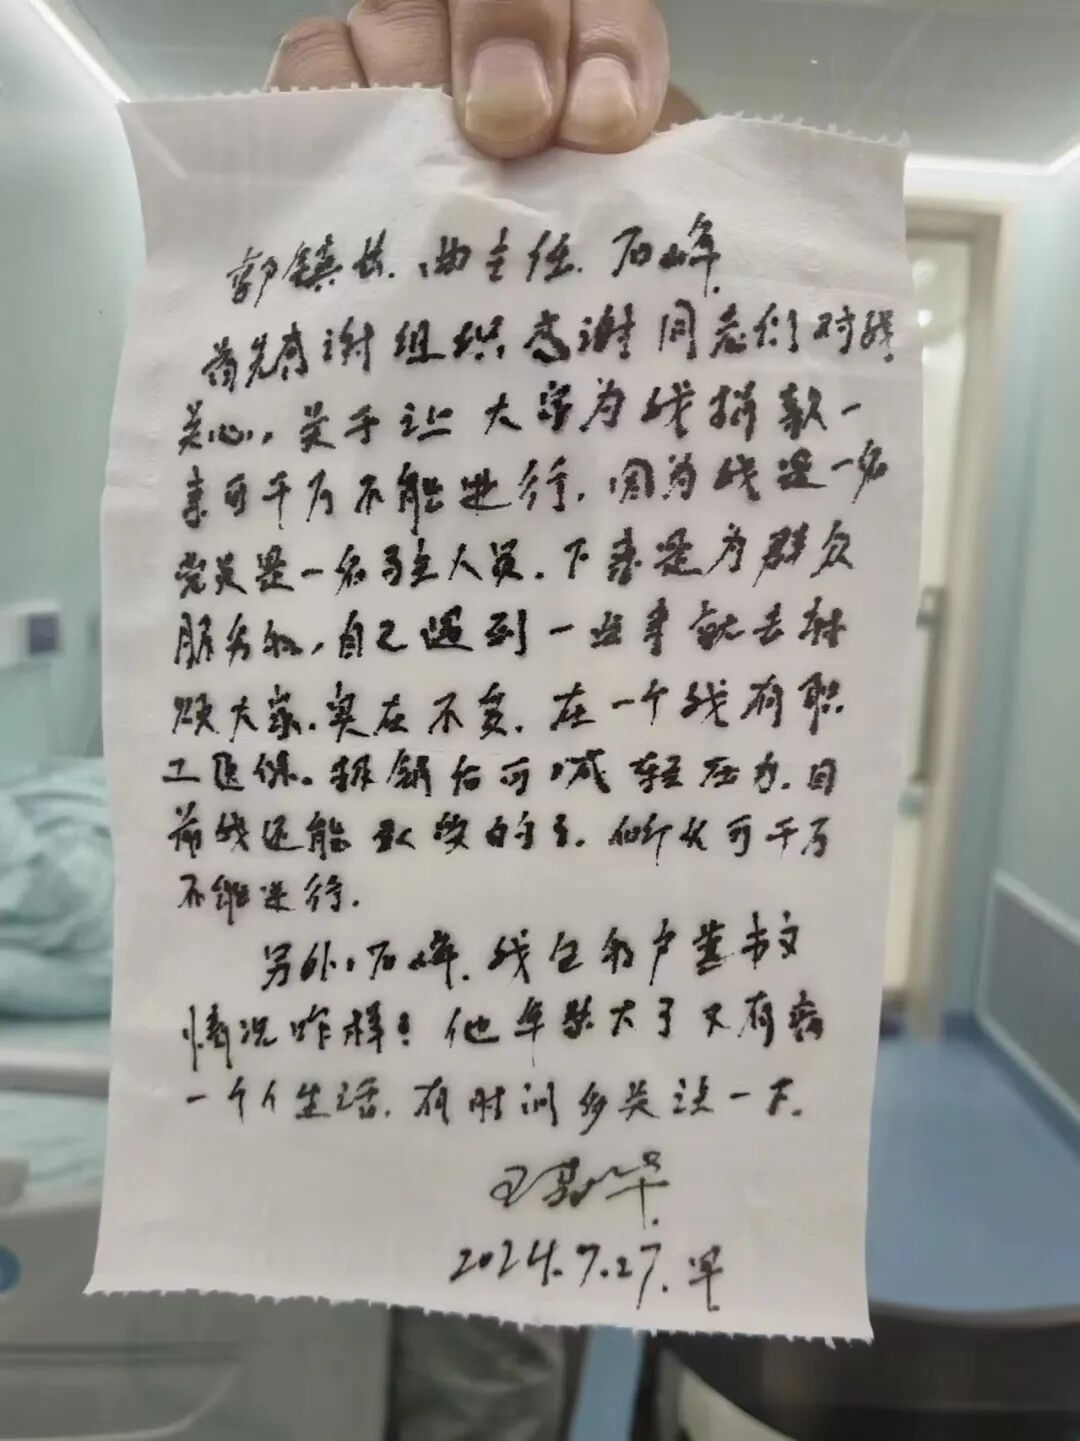 郭镇长.曲主任.石峰.
首先感谢组织感谢同志们对我
关心,关于让大家为我捐款一
事可千万不能进行.因为我是一名
党员是一名驻人员.下来是为群众
服务的,自己遇到一些事就去麻
烦大家.实在不安.在一个我有职
工医保。报销后可减轻压力.目
前我还能承受的了.仰火可千万
不能进行.
另外,石峰.我包的户 书文
情况咋样!他年龄大了又有病
一个人生活.有时间多关注一下.
王 华.
2024.7.27.早